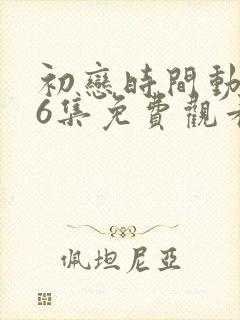 初戀時間動
6集免費觀看
佩坦尼亞